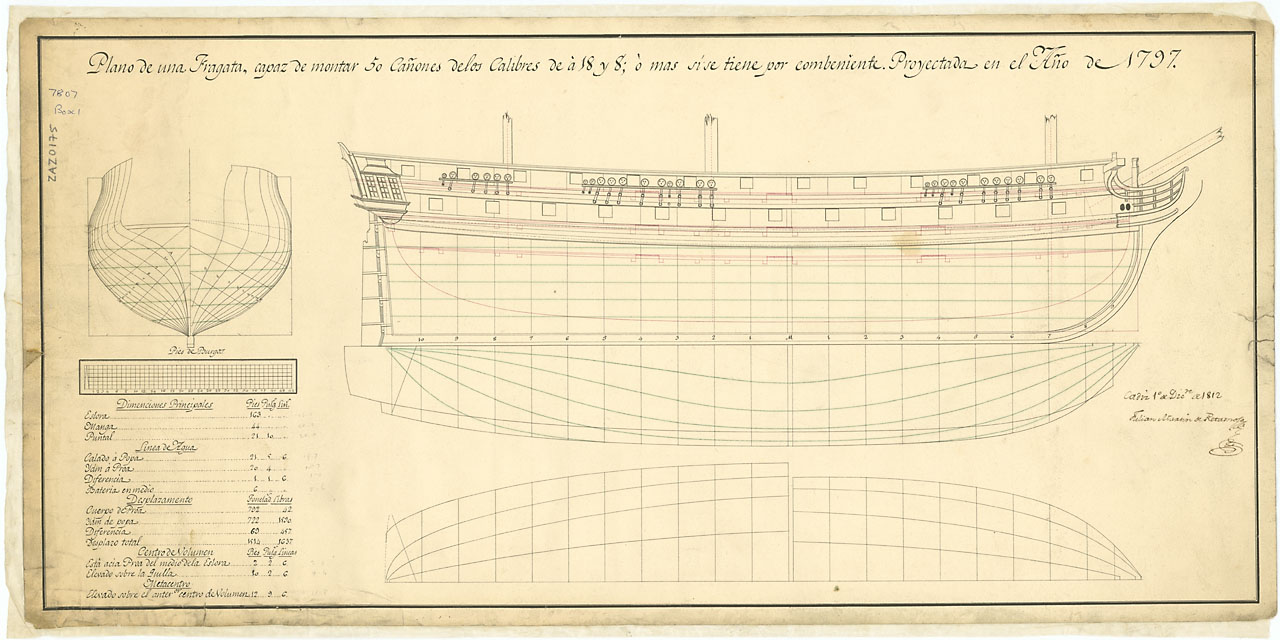 Plano de una Fragata, capaz de montar 50 Cañones de los Calibres de à 18 y 8; ò mas si se tiene por combeniente. Proyectada en el Año de 1797.
7807
Box 1
ZAZ0175
Pies de Burgos
Dimenciones Principales Pies Pulg
Eslora 163
Manga 44
Puntal 21 10
Linea de Agua
Calado á Popa 21 5 6
Ydm á Pròa 20 4
Diferencia 1 1 6
Bateria en medio 6
Desplazamento Tonelad Libras
Cuerpo de Pròa 792 42
Ydm de popa 722
Diferencia
Desplazo total
Centro de Volumen Pies Pulg Lineas
Està acia Pròa del medio de la Eslora 2 2 6
Elevado sobre la Quilla 10 2 6
Metacentro
Elevado sobre el anter.or centro de Volumen 12 9 6
10 9 8 7 6 5 4 3 2 1 M 1 2 3 4 5 6 7
Cadiz 1º de de 1812
de